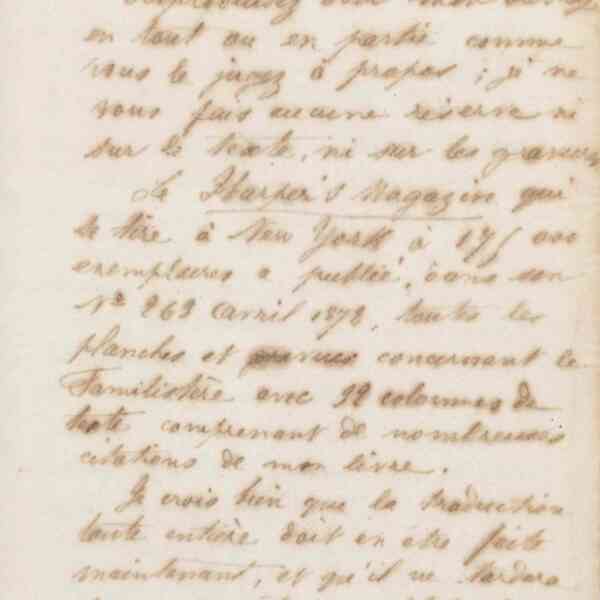 en tout ou en partie comme
vous le jugez à propos ; je ne
vous fais aucune réserve ni
sur le texte, ni sur les gravures
Le Harper's Magazin qui
se tire à New York à 175 000
exemplaires a publié, dans son
Nº 262 avril 1872, toutes les
planches et concernant le
Familistère avec colonnes de
texte comprenant de nombreuses
citations de mon livre.
Je crois bien que la traduction
toute entière doit en être faite
maintenant, et qu'il ne tardera